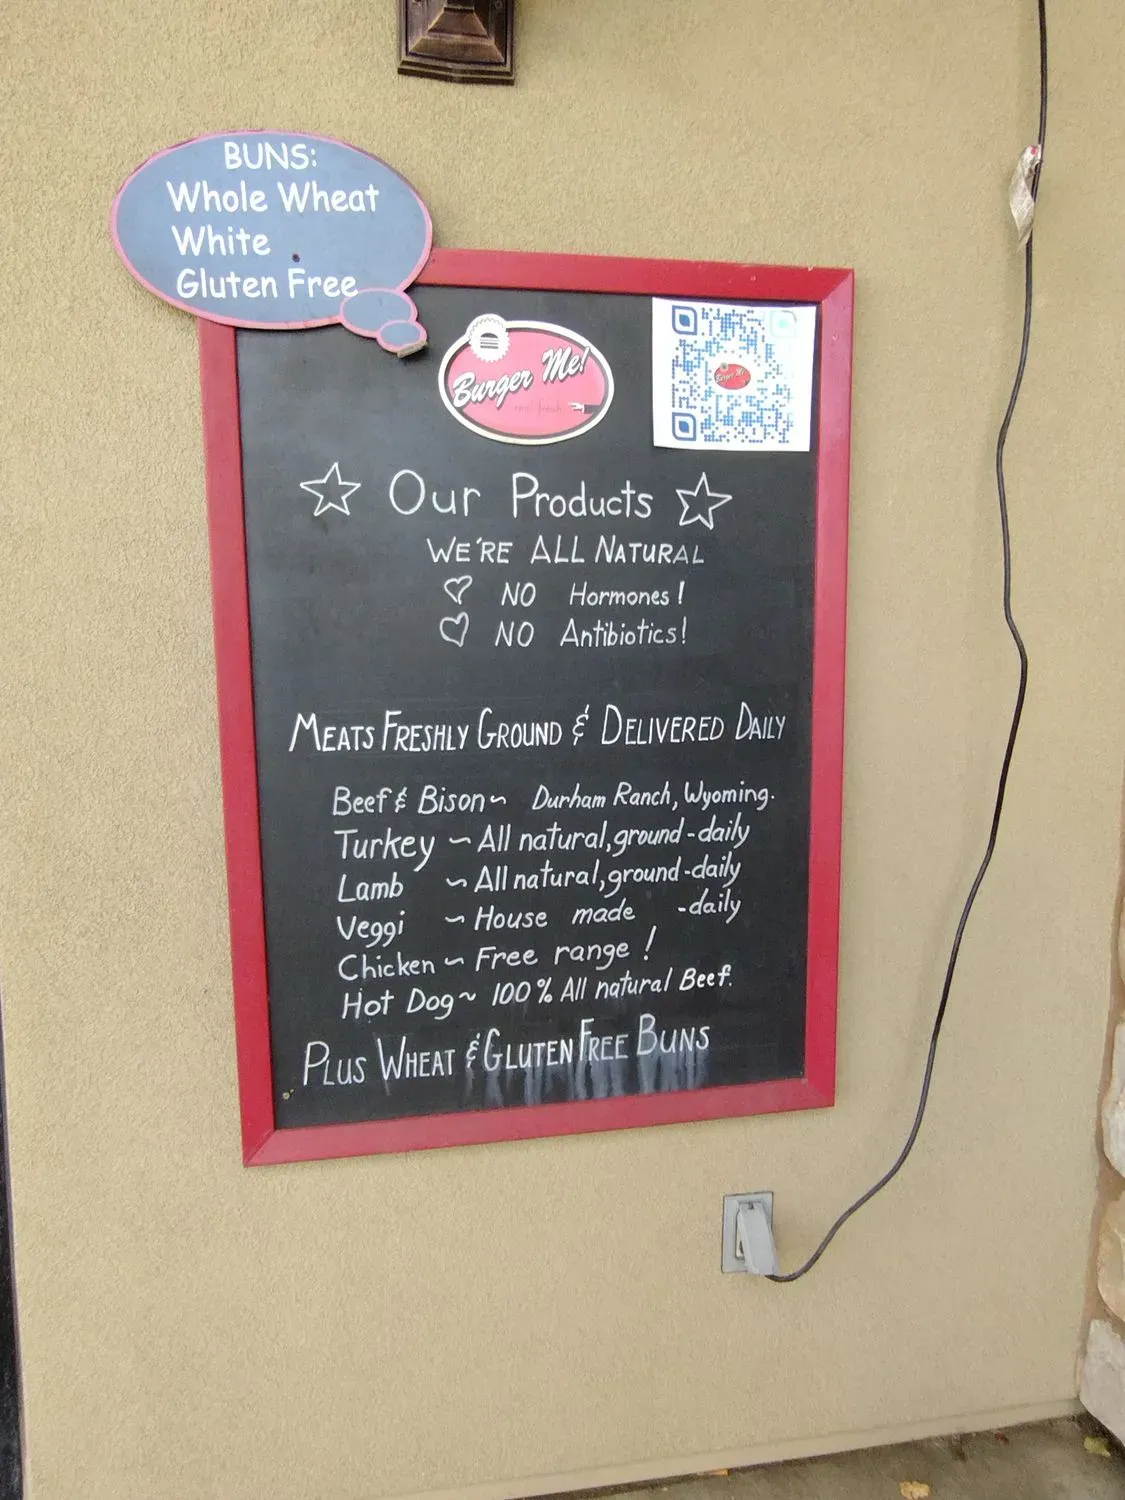 BUNS:
Whole Wheat
White
Gluten Free
Burger Me!
Burger Me!
Our Products
WE'RE ALL NATURAL
NO Hormones!
NO Antibiotics!
MEATS FRESHLY GROUND & DELIVERED DAILY
Beef & Bison ~ Durham Ranch, Wyoming.
Turkey ~ All natural, ground-daily
Lamb ~ All natural, ground-daily
Veggi ~ House made -daily
Chicken ~ Free range!
Hot Dog ~ 100% All natural Beef.
PLUS WHEAT & GLUTEN FREE BUNS